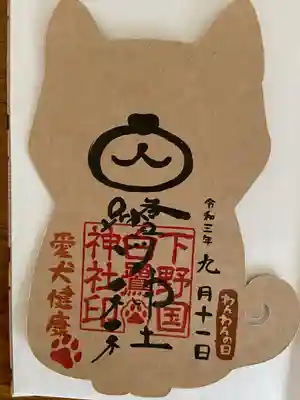 令和三年
九月十一日
わんわんの日
下野国
白鷺
神社印
愛犬健康